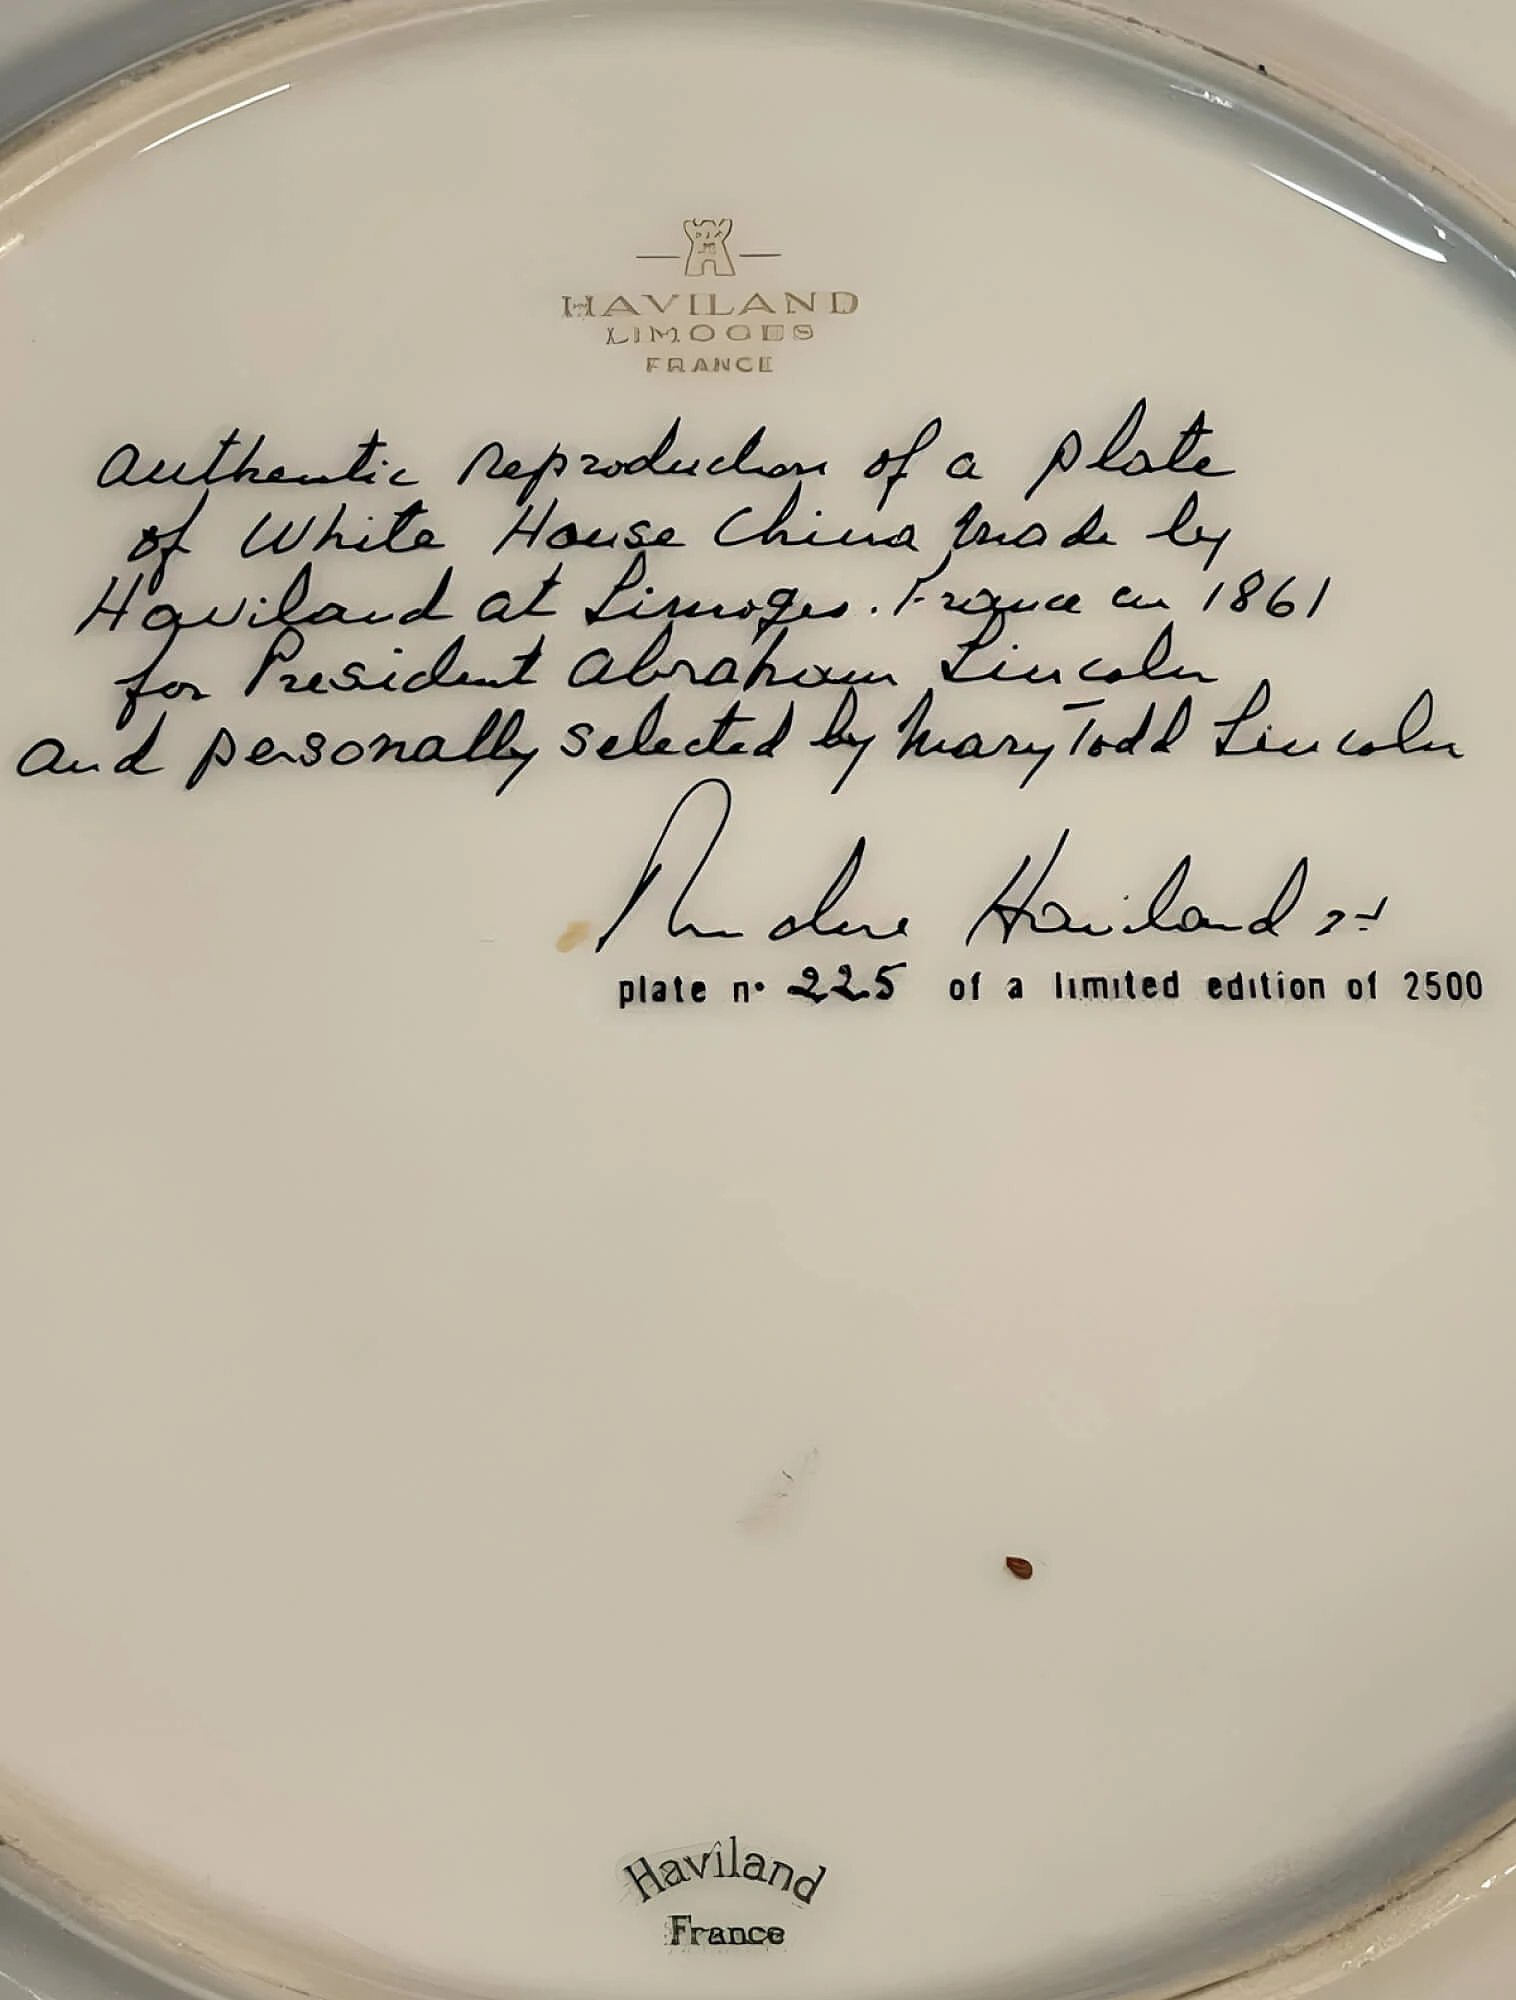 HAVILAND
LIMOGES
FRANCE
Authentic reproduction of a plate
of White House China made by
Haviland at Limoges. France in 1861
for President Abraham Lincoln
and personally selected by Mary Todd Lincoln
Haviland
plate n° 225 of a limited edition of 2500
Haviland
France